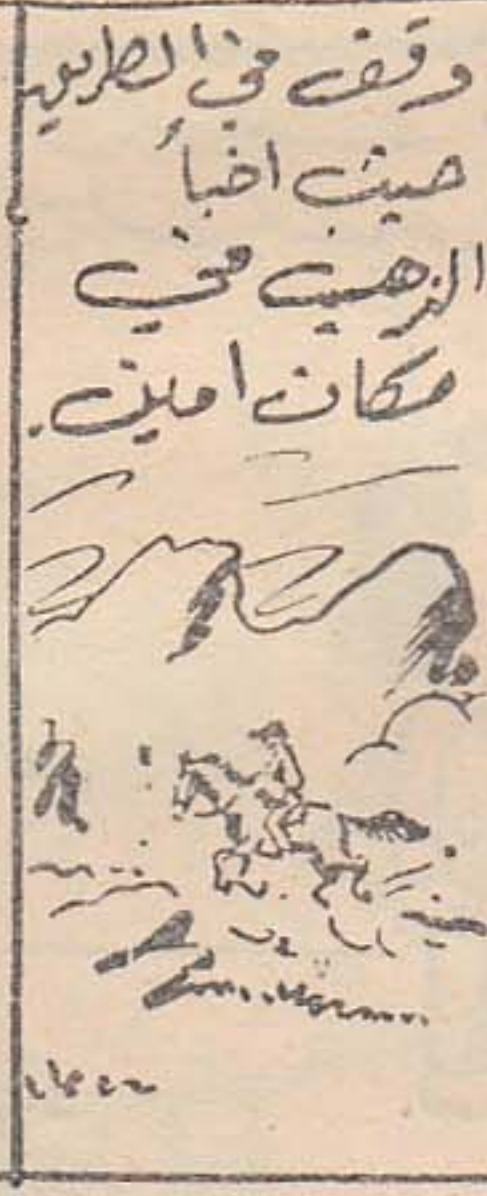 وقف في الطريق
حيث اخبأ
الذهب في
مكان امين.